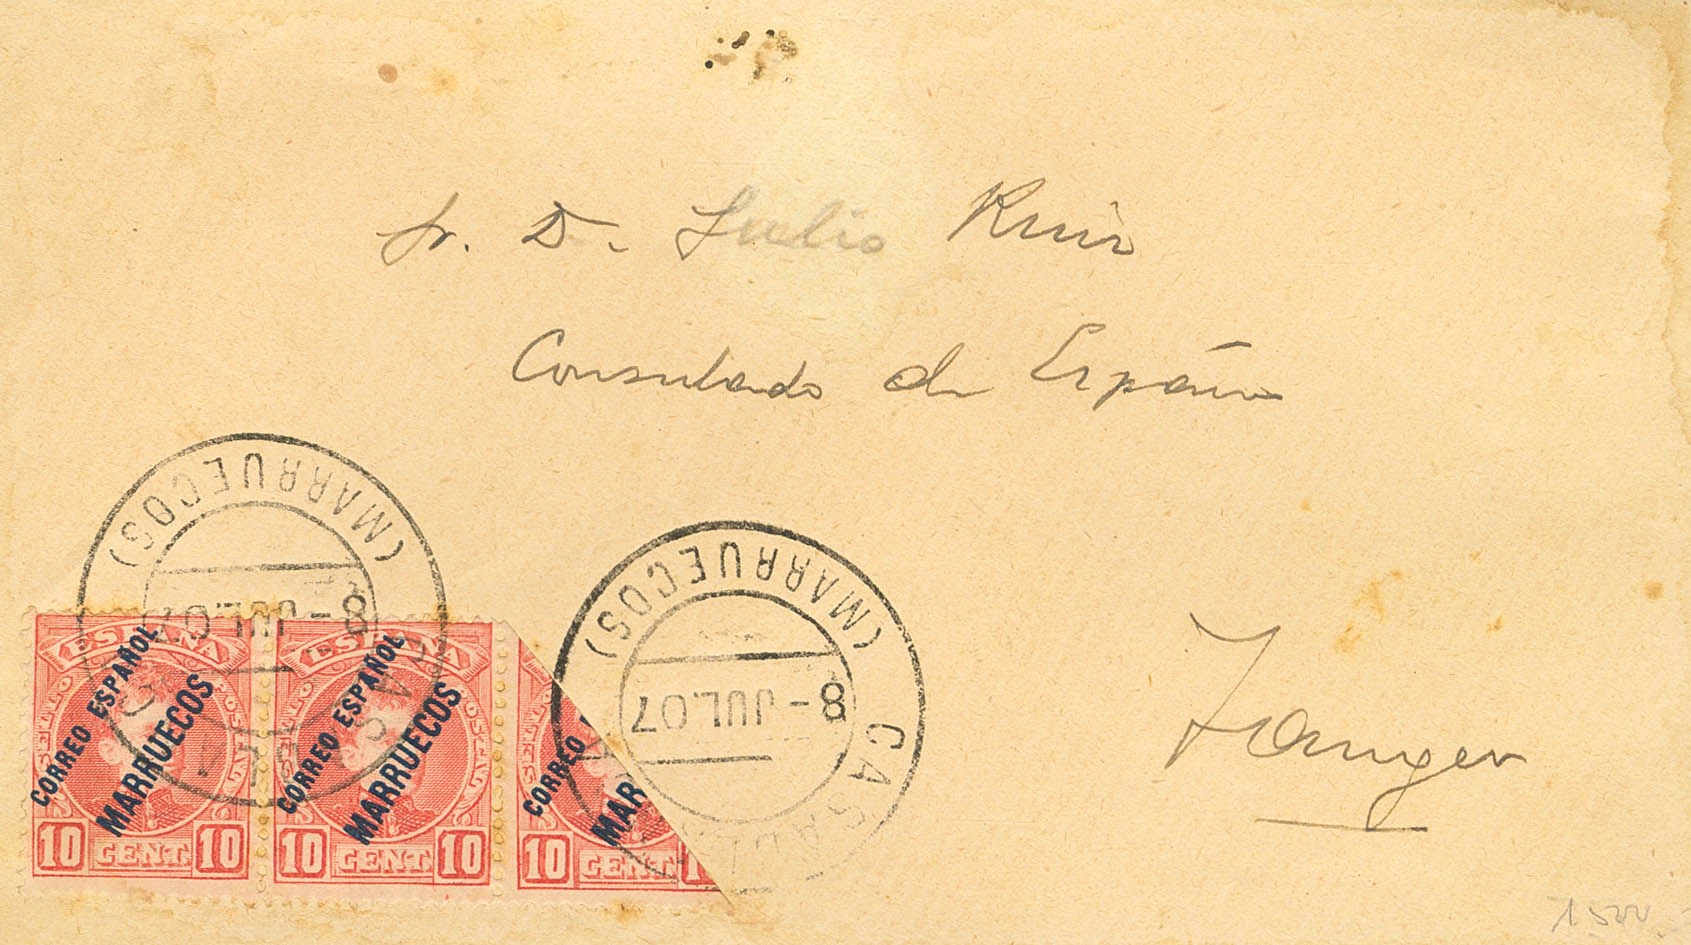 Sr. D. Julio Ruiz
Consulado de España
Tanger
(MARRUECOS)
8-JUL.07
CASA
(MARRUECOS)
8-JUL.07
CASA
ESPAÑA
CORREO ESPAÑOL
MARRUECOS
10 CENT. 10
ESPAÑA
CORREO ESPAÑOL
MARRUECOS
10 CENT. 10
CORREO
MAR
10 CENT. 1